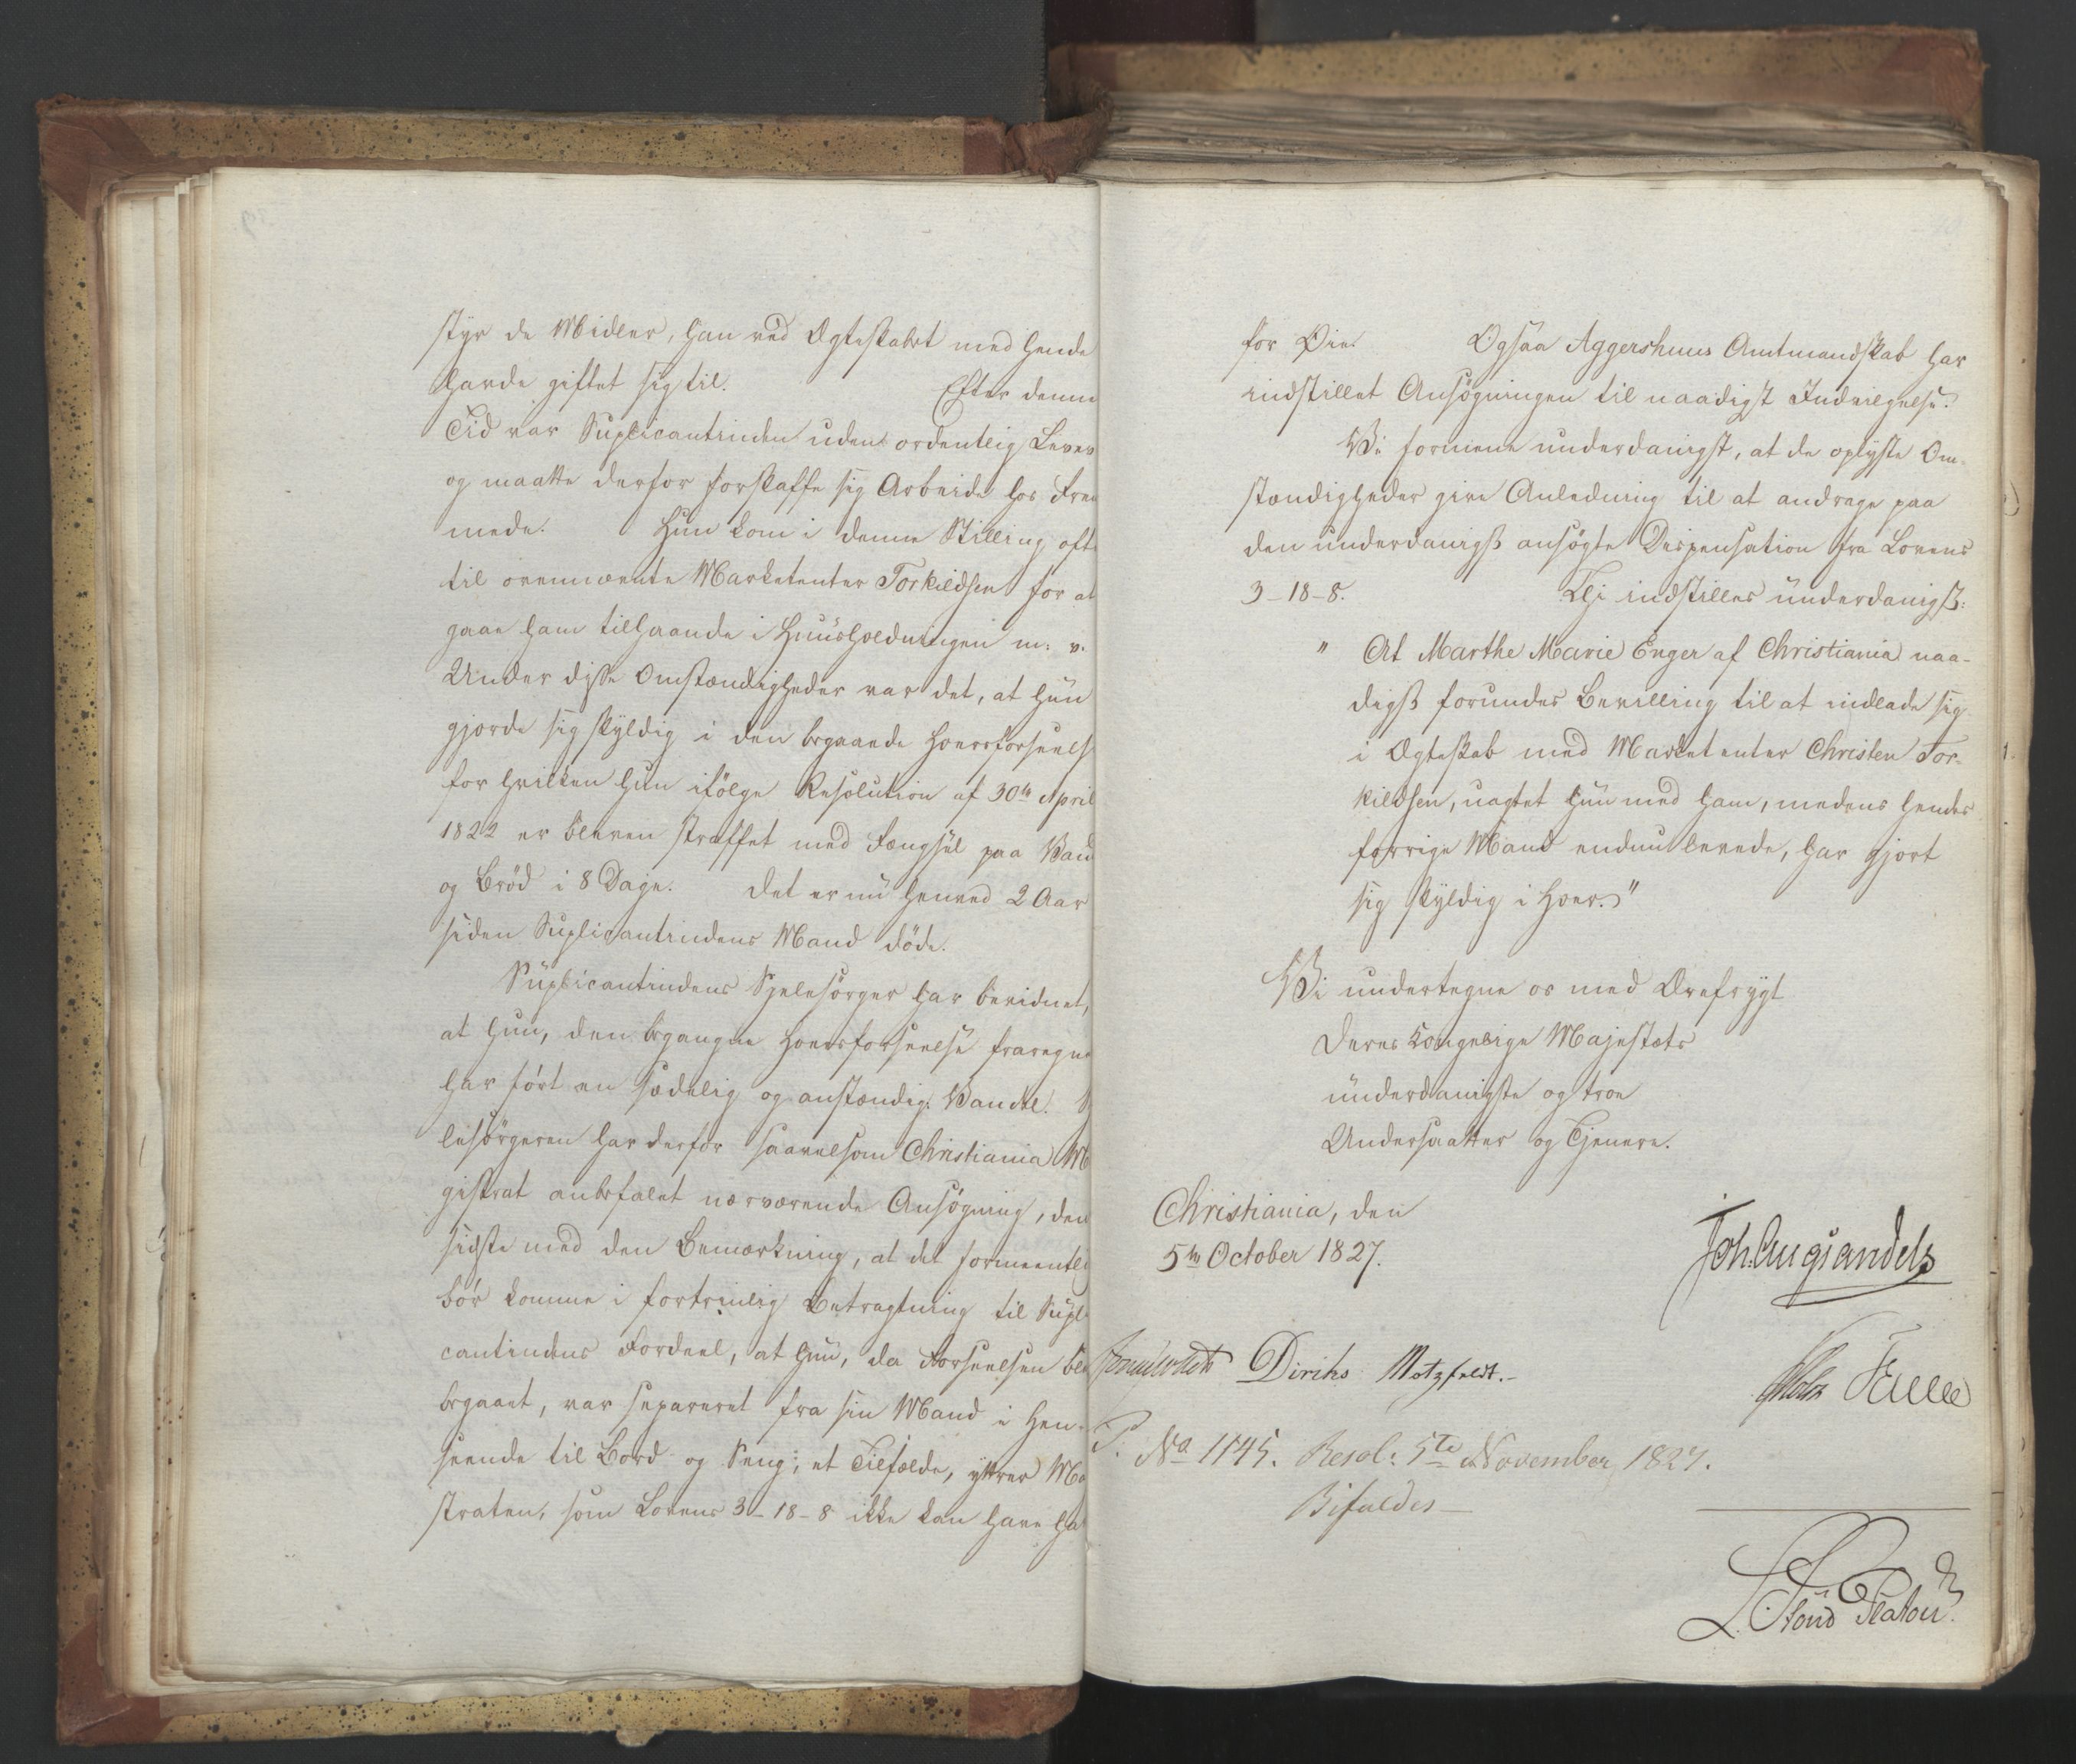 styr de Midler, han ved Ægteskabet med hende
havde giftet sig til. Efter denne
Tid var Suplicantinden uden ordentlig Levev
og maatte derfor forskaffe sig Arbeide hos Frem
mede. Hun kom i denne Stilling ofte
til ovennævnte Marketenter Torkildsen for at
gaae ham tilhaande i Huusholdningen m: v.
Under disse Omstændigheder var det, at hun
gjorde sig skyldig i den begaaede Hoersforseelse
for hvilken hun ifølge Resolution af 30te April
1822 er bleven straffet med Fængsel paa Vand
og Brød i 8 Dage. Det er nu henved 2 Aar
siden Suplicantindens Mand døde.
Suplicantindens Sjelesørger har bevidnet,
at hun, den begangne Hoersforseelse fraregnet
har ført en sædelig og anstændig Vandel. Sj
lesørgeren har derfor saavelsom Christiania Ma
gistrat anbefalet nærværende Ansøgning, den
sidste med den Bemærkning, at det formeentlig
bør komme i fortrinlig Betragtning til Supli
cantindens Fordeel, at hun, da Forseelsen blev
begaaet, var separeret fra sin Mand i Hen-
seende til Bord og Seng; et Tilfælde, yttrer Ma
straten, som Lovens 3-18-8 ikke kan have hat
for Øie. Ogsaa Aggershuus Amtmandskab har
indstillet Ansøgningen til naadigst Indvilgelse.
Vi formene underdanigst, at de oplyste Om-
stændigheder give Anledning til at andrage paa
den underdanigst ansøgte Dispensation fra Lovens
3-18-8. Thi indstilles underdanigst:
" At Marthe Marie Enger af Christiania naa-
digst forundes Bevilling til at indlade sig
i Ægteskab med Marketenter Christen Tor-
kildsen, uagtet hun med ham, medens hendes
forrige Mand endnu levede, har gjort
sig skyldig i Hoer."
Vi undertegne os med Ærefrygt
Deres Kongelige Majestæts
underdanigste og troe
Undersaatter og Tjenere.
Christiania, den
5te October 1827.
Joh. Aug Sandels
Diriks Motzfeldt.
Holst Fasting
P. No 1145. Resol: 5te November 1827.
Bifaldes
L. Stoud Platou